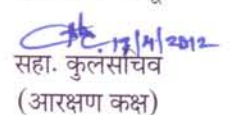 17/4/2012
सहा. कुलसचिव
(आरक्षण कक्ष)